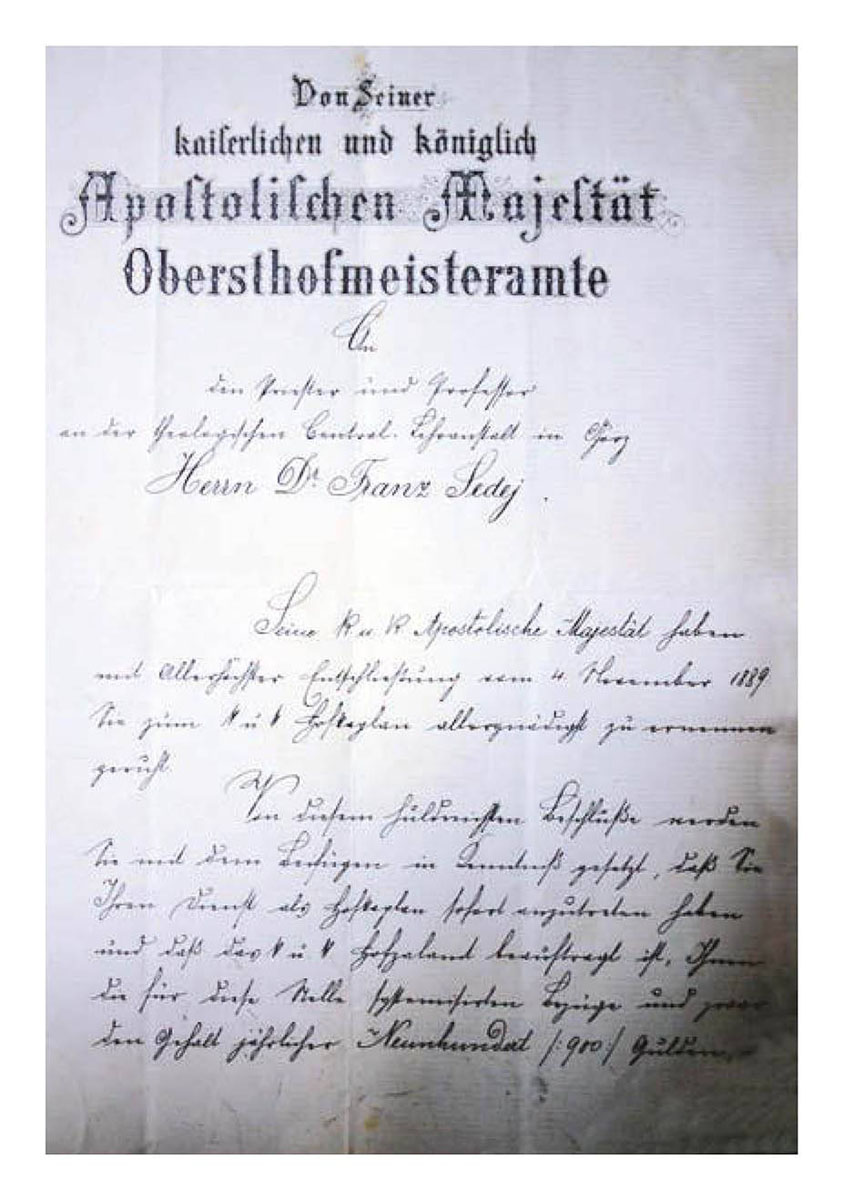 Von Seiner
kaiserlichen und königlich
Apostolischen Majestät
Obersthofmeisteramte
An
den Priester und Professor
an der theologischen Central-Lehranstalt in Görz
Herrn Dr. Franz Sedej.
Seine K u. K Apostolische Majestät haben
mit Allerhöchster Entschließung vom 4. November 1889
Sie zum k u k Hofkaplan allergnädigst zu ernennen
geruht.
Von diesem huldreichsten Beschluße werden
Sie mit dem Beifügen in Kenntniß gesetzt, daß Sie
Ihren Dienst als Hofkaplan sofort anzutreten haben
und daß das k u k Hofzalamt beauftragt ist, Ihnen
die für diese Stelle systemisirten Bezüge und zwar
den Gehalt jährlicher Neunhundert /:900:/ Gulden,